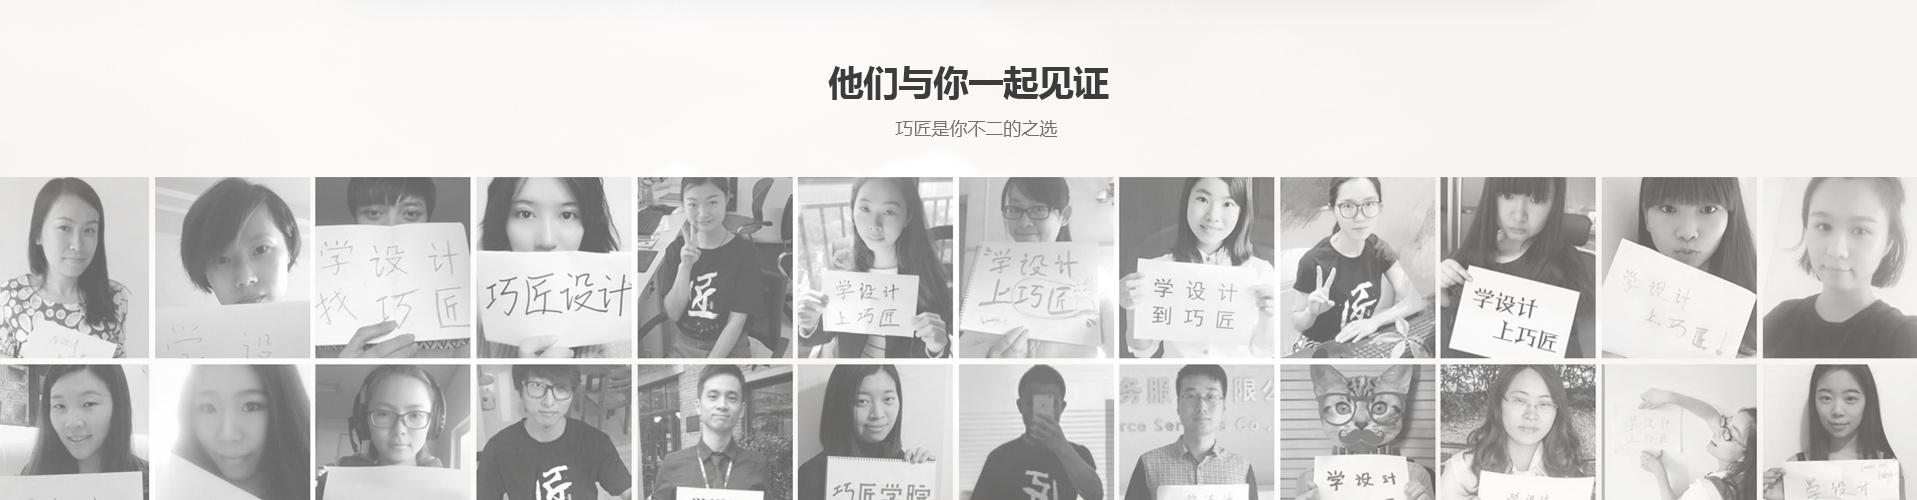 他们与你一起见证
巧匠是你不二的之选
学 设
学 设 计
找 巧 匠
巧匠设计
匠
学设计
上巧匠
学设计
上巧匠
学设计
到巧匠
匠
学设计
上巧匠
学设计
上巧匠!
匠
巧匠学院
务服
限公
rce Ser
Co.,
学设计
学设计
学设计
上巧匠
学设计